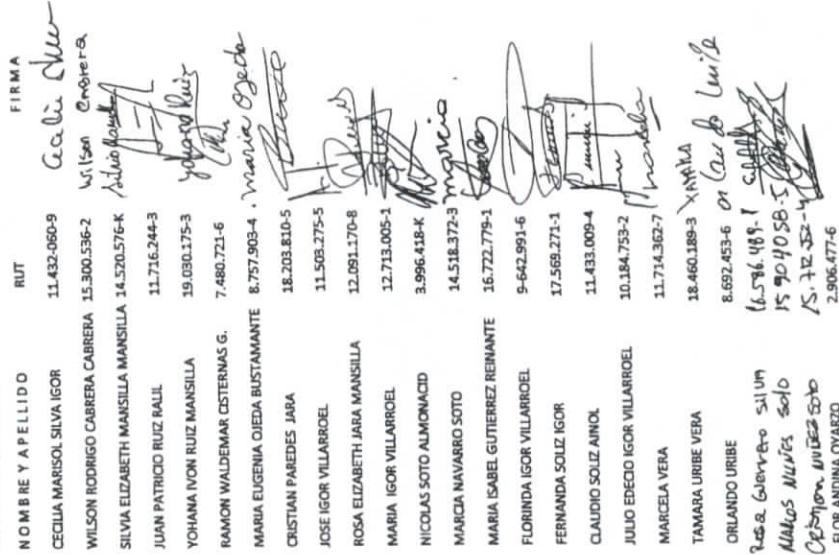 NOMBRE Y APELLIDO RUT FIRMA
CECILIA MARISOL SILVA IGOR 11.432-060-9 Cecilia
WILSON RODRIGO CABRERA CABRERA 15.300.536-2 Wilson Cabrera
SILVIA ELIZABETH MANSILLA MANSILLA 14.520.576-K Silvia Mansilla
JUAN PATRICIO RUIZ RALIL 11.716.244-3
YOHANA IVON RUIZ MANSILLA 19.030.175-3 Yohana Ruiz
RAMON WALDEMAR CISTERNAS G. 7.480.721-6
MARIA EUGENIA OJEDA BUSTAMANTE 8.757.903-4 maria Ojeda
CRISTIAN PAREDES JARA 18.203.810-5
JOSE IGOR VILLARROEL 11.503.275-5
ROSA ELIZABETH JARA MANSILLA 12.091.170-8
MARIA IGOR VILLARROEL 12.713.005-1
NICOLAS SOTO ALMONACID 3.996.418-K
MARCIA NAVARRO SOTO 14.518.372-3 marcia.
MARIA ISABEL GUTIERREZ REINANTE 16.722.779-1
FLORINDA IGOR VILLARROEL 9-642.991-6
FERNANDA SOLIZ IGOR 17.569.271-1
CLAUDIO SOLIZ AINOL 11.433.009-4
JULIO EDECIO IGOR VILLARROEL 10.184.753-2
MARCELA VERA 11.714.362-7 Marcela
TAMARA URIBE VERA 18.460.189-3
ORLANDO URIBE 8.692.453-6
Rosa Guerrero Silva 16.586.489-1
Marcos Nuñes Soto 15904058-5
Cristian Nuñez Soto
2.906.477-6